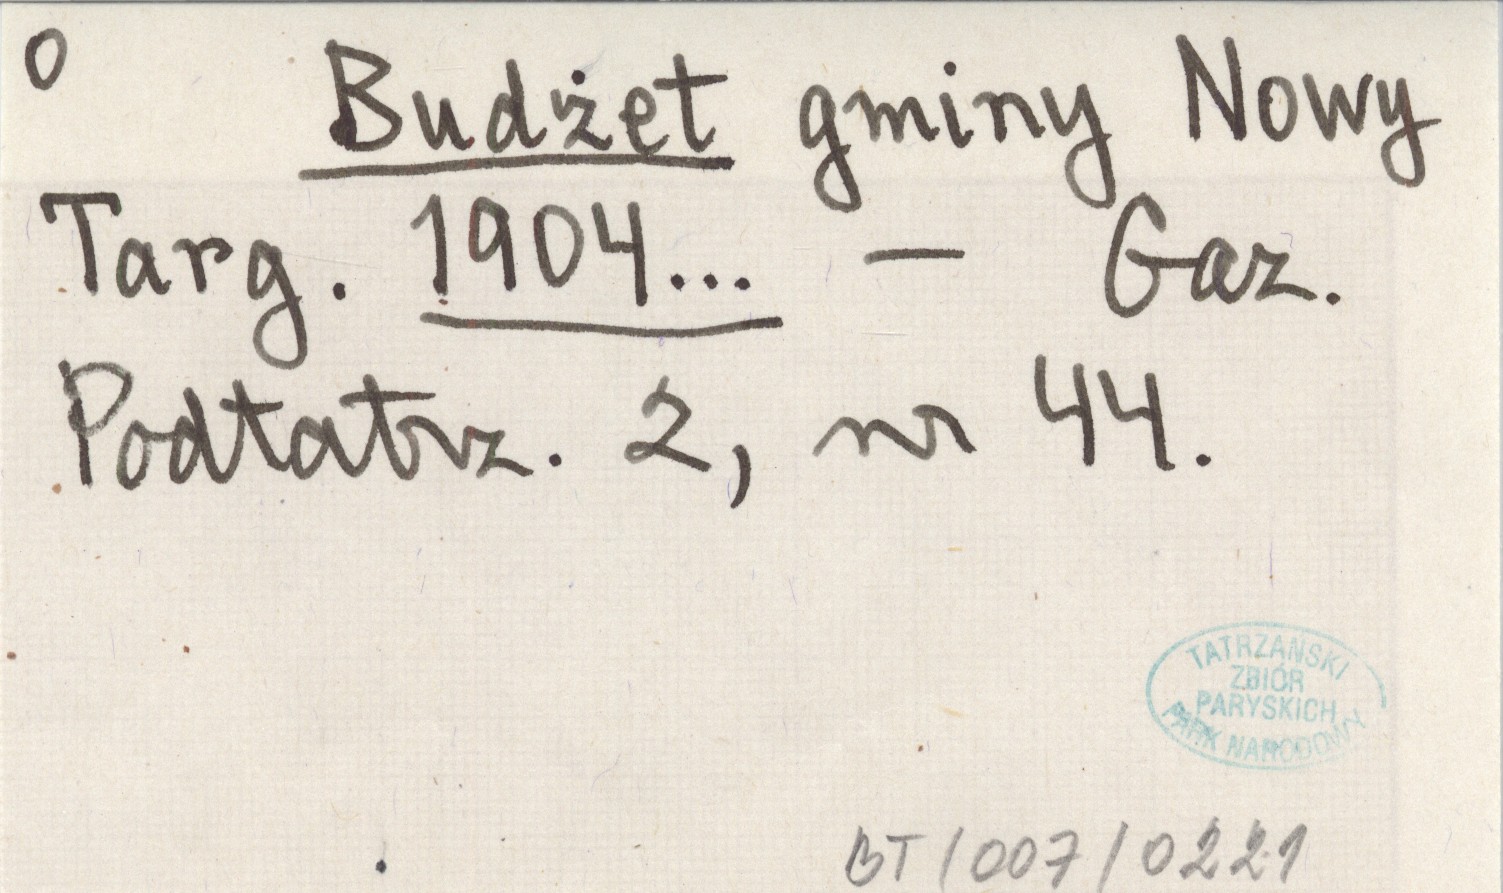 o Budżet gminy Nowy
Targ. 1904... — Gaz.
Podtatrz. 2, nr 44.
TATRZAŃSKI
ZBIÓR
PARYSKICH
PARK NARODOWY
BT/007/0221